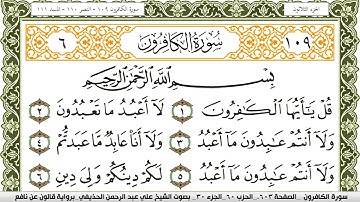 الجزء الثلاثون سورة الكافرون ١٠٩ - النصر ١١٠ - المسد ١١١
١٠٩ سُورَةُ الكَافِرُون ٦
بِسْمِ اللَّهِ الرَّحْمَٰنِ الرَّحِيمِ
قُلْ يَٰٓأَيُّهَا ٱلْكَٰفِرُونَ ١ لَآ أَعْبُدُ مَا تَعْبُدُونَ ٢
وَلَآ أَنتُمْ عَٰبِدُونَ مَآ أَعْبُدُ ٣ وَلَآ أَنَا۠ عَابِدٌ مَّا عَبَدتُّمْ ٤
وَلَآ أَنتُمْ عَٰبِدُونَ مَآ أَعْبُدُ ٥ لَكُمْ دِينُكُمْ وَلِيَ دِينِ ٦
سورة الكافرون .. الصفحة ٦٠٣ .. الحزب ٦٠ .. الجزء ٣٠ .. بصوت الشيخ علي عبد الرحمن الحذيفي .. برواية قالون عن نافع